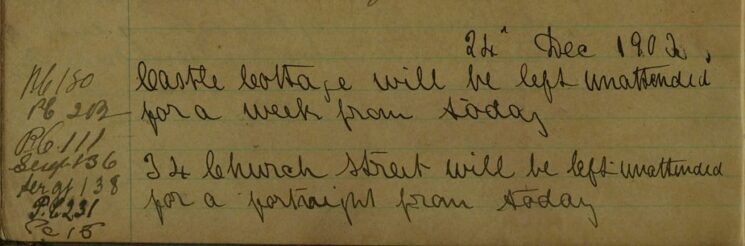 24" Dec 1902.
Castle Cottage will be left unattended
for a week from today
34 Church Street will be left unattended
for a fortnight from today
PC 180
PC 202
P.C. 111
Sergt 136
Sergt 138
P.C 231
Pc 15